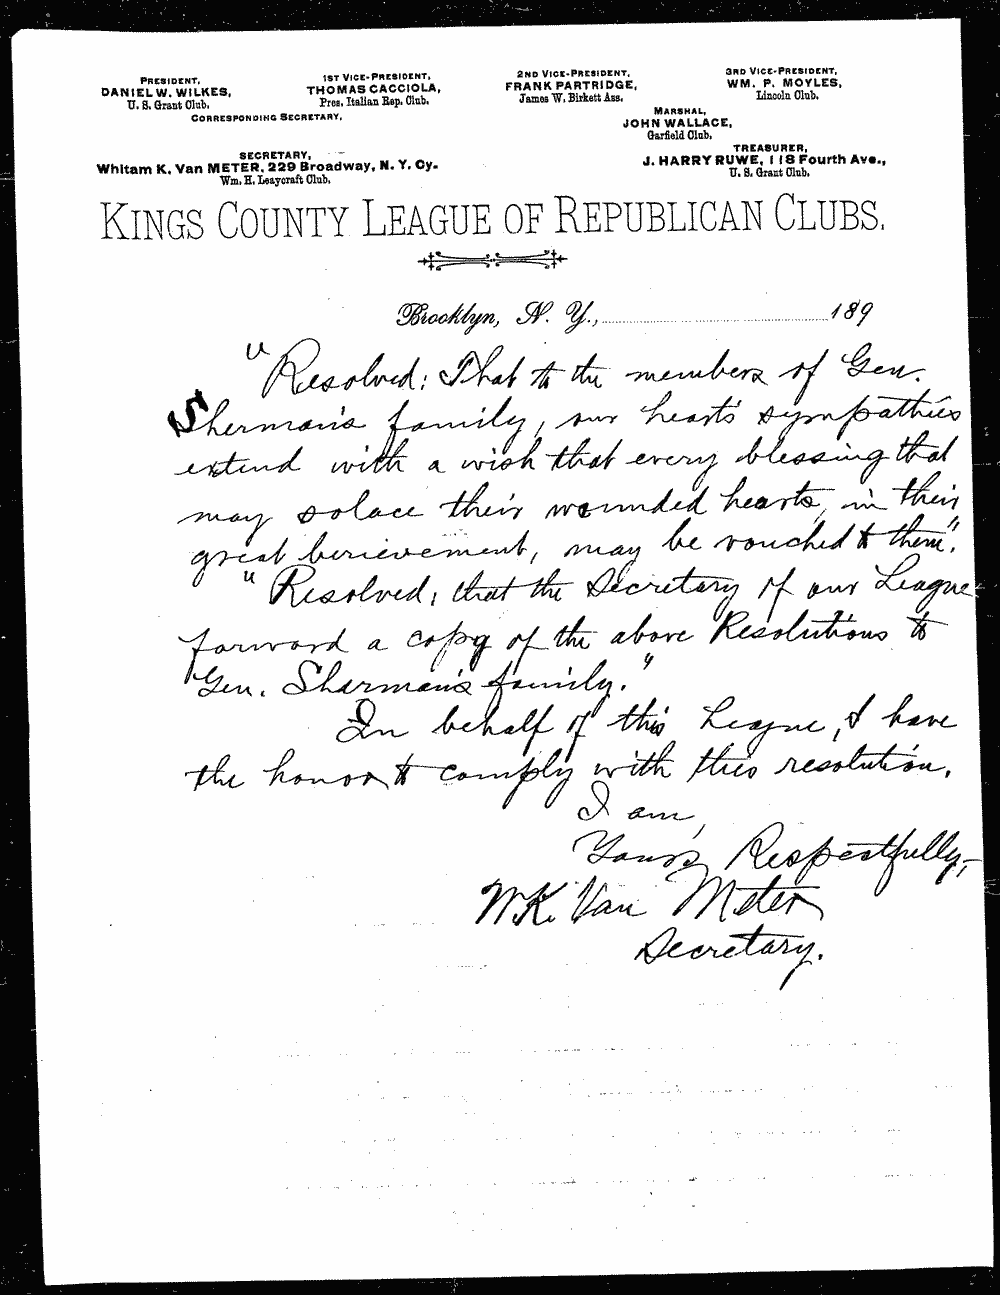 PRESIDENT,
DANIEL W. WILKES,
U. S. Grant Club.
1ST VICE-PRESIDENT,
THOMAS CACCIOLA,
Pres. Italian Rep. Club.
2ND VICE-PRESIDENT,
FRANK PARTRIDGE,
James W. Birkett Ass.
3RD VICE-PRESIDENT,
WM. P. MOYLES,
Lincoln Club.
CORRESPONDING SECRETARY,
MARSHAL,
JOHN WALLACE,
Garfield Club.
SECRETARY,
Whitam K. Van METER, 229 Broadway, N. Y. Cy.
Wm. H. Leaycraft Club.
TREASURER,
J. HARRY RUWE, 118 Fourth Ave.,
U. S. Grant Club.
KINGS COUNTY LEAGUE OF REPUBLICAN CLUBS.
Brooklyn, N. Y., 189
"Resolved: That to the members of Gen.
Sherman's family, our hearts sympathies
extend with a wish that every blessing that
may solace their wounded hearts, in their
great berievement, may be vouched to them".
"Resolved, that the Secretary of our League
forward a copy of the above Resolutions to
Gen. Sherman's family."
In behalf of this League, I have
the honor to comply with this resolution.
I am,
Yours Respectfully,
W.K. Van Meter
Secretary.